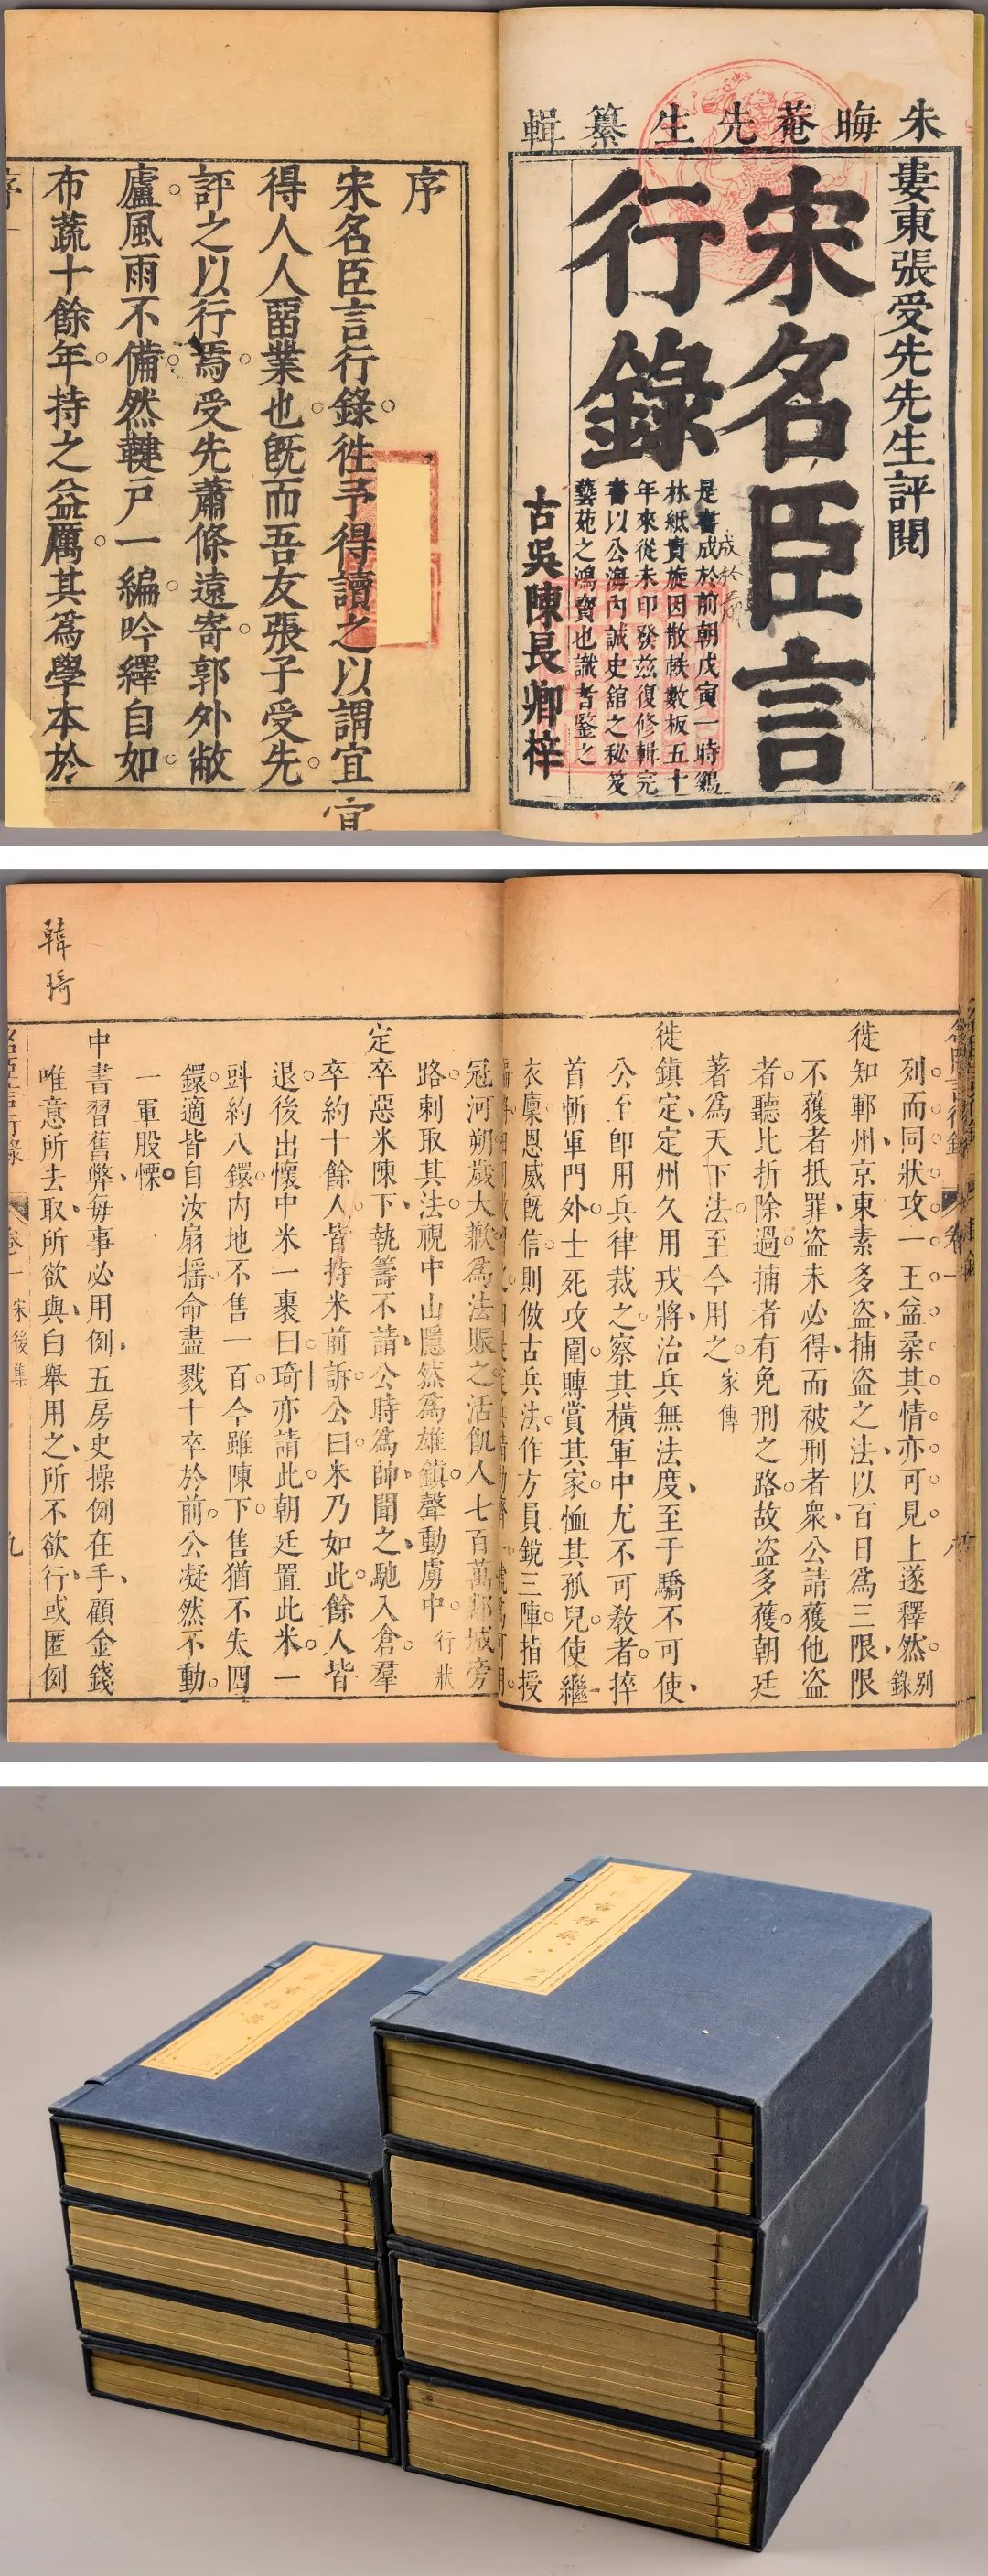 朱晦菴先生纂輯
婁東張受先先生評閱
宋名臣言
行錄
是書成於前朝戊寅一時鷄
林紙貴旋因散軼數板五十
年來從未印發茲復修輯完
書以公海內誠史舘之秘笈
藝苑之鴻寶也識者鑒之
古吳陳長卿梓
成於前
序
宋名臣言行錄徃予得讀之以謂宜
得人人畱業也旣而吾友張子受先
評之以行焉受先蕭條遠寄郭外敝
廬風雨不備然鞬戸一編吟繹自如
布蔬十餘年持之益厲其為學本於
宜
列而同狀攻一王益柔其情亦可見上遂釋然別錄
徙知鄆州京東素多盜捕盜之法以百日爲三限限
不獲者抵罪盜未必得而被刑者衆公請獲他盜
者聽比折除過捕者有免刑之路故盜多獲朝廷
著爲天下法至今用之家傳
徙鎮定定州久用戎將治兵無法度至于驕不可使
公至卽用兵律裁之察其横軍中尤不可敎者捽
首斬軍門外士死攻圍賻賞其家恤其孤兒使繼
衣廩恩威旣信則倣古兵法作方員銳三陣指授
冠河朔歲大歉爲法賑之活飢人七百萬鄰城旁
路刺取其法視中山隱然爲雄鎮聲動虜中行狀
定卒惡米陳下執籌不請公時爲帥聞之馳入倉羣
卒約十餘人皆持米前訴公曰米乃如此餘人皆
退後出懷中米一裹曰琦亦請此朝廷置此米一
㪷約八鐶內地不售一百今雖陳下售猶不失四
鐶適皆自汝扇揺命盡戮十卒於前公凝然不動
一軍股慄
中書習舊弊每事必用例五房史操例在手顧金錢
唯意所去取所欲與白舉用之所不欲行或匿例
韓琦
名臣言行錄
卷一
宋後集
九